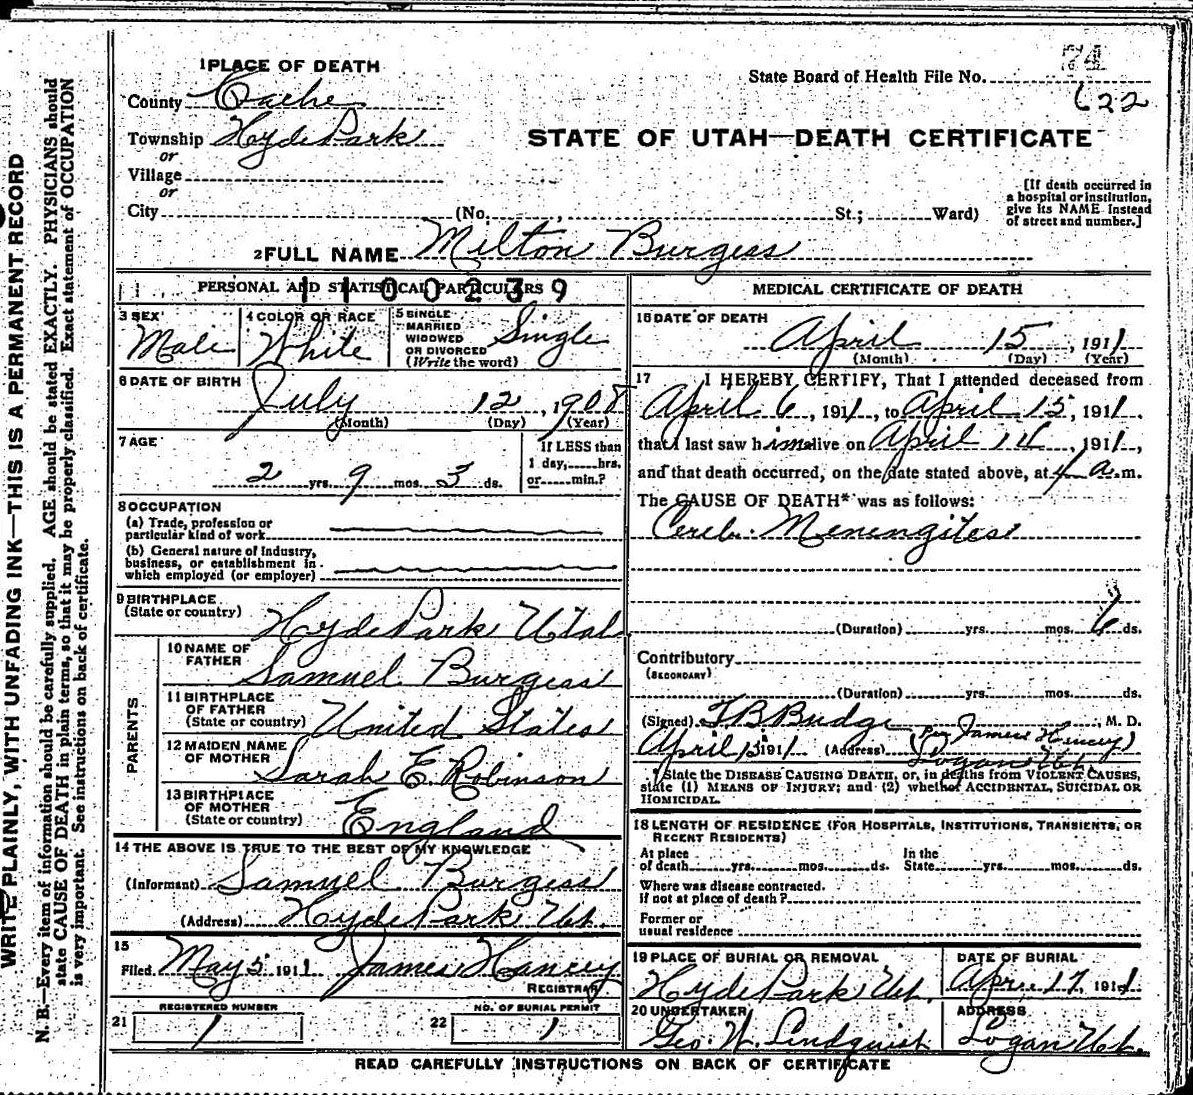 1 PLACE OF DEATH
74
State Board of Health File No.
622
County Cache
Township Hyde Park
or
Village
or
City (No. , St.; Ward)
STATE OF UTAH—DEATH CERTIFICATE
[If death occurred in
a hospital or institution,
give its NAME instead
of street and number.]
2 FULL NAME Milton Burgess
PERSONAL AND STATISTICAL PARTICULARS
1100239
3 SEX
Male
4 COLOR OR RACE
White
5 SINGLE
MARRIED
WIDOWED
OR DIVORCED
(Write the word)
Single
6 DATE OF BIRTH
July 12, 1908
(Month) (Day) (Year)
7 AGE
2 yrs. 9 mos. 3 ds.
If LESS than
1 day, hrs.
or min.?
8 OCCUPATION
(a) Trade, profession or
particular kind of work
(b) General nature of industry,
business, or establishment in
which employed (or employer)
9 BIRTHPLACE
(State or country)
Hyde Park Utah
PARENTS
10 NAME OF
FATHER
Samuel Burgess
11 BIRTHPLACE
OF FATHER
(State or country)
United States
12 MAIDEN NAME
OF MOTHER
Sarah E. Robinson
13 BIRTHPLACE
OF MOTHER
(State or country)
England
14 THE ABOVE IS TRUE TO THE BEST OF MY KNOWLEDGE
(Informant) Samuel Burgess
(Address) Hyde Park Ut.
15
Filed May 5 1911 James Hancey
REGISTRAR
REGISTERED NUMBER
21 1
NO. OF BURIAL PERMIT
22 1
MEDICAL CERTIFICATE OF DEATH
16 DATE OF DEATH
April 15, 1911
(Month) (Day) (Year)
17 I HEREBY CERTIFY, That I attended deceased from
April 6, 1911, to April 15, 1911,
that I last saw him alive on April 14, 1911,
and that death occurred, on the date stated above, at 4 a.m.
The CAUSE OF DEATH* was as follows:
Cereb. Menengites
(Duration) yrs. mos. 6 ds.
Contributory
(SECONDARY)
(Duration) yrs. mos. ds.
(Signed) T B Budge, M. D.
(per James Hancey)
April 15 1911 (Address) Logan Ut.
* State the DISEASE CAUSING DEATH, or, in deaths from VIOLENT CAUSES,
state (1) MEANS OF INJURY; and (2) whether ACCIDENTAL, SUICIDAL OR
HOMICIDAL.
18 LENGTH OF RESIDENCE (FOR HOSPITALS, INSTITUTIONS, TRANSIENTS, OR
RECENT RESIDENTS)
At place
of death yrs. mos. ds.
In the
State yrs. mos. ds.
Where was disease contracted.
if not at place of death?
Former or
usual residence
19 PLACE OF BURIAL OR REMOVAL
Hyde Park Ut.
DATE OF BURIAL
Apr. 17, 1911
20 UNDERTAKER
Geo. W. Lindquist
ADDRESS
Logan Ut.
READ CAREFULLY INSTRUCTIONS ON BACK OF CERTIFICATE
WRITE PLAINLY, WITH UNFADING INK—THIS IS A PERMANENT RECORD
N. B.—Every item of information should be carefully supplied. AGE should be stated EXACTLY. PHYSICIANS should
state CAUSE OF DEATH in plain terms, so that it may be properly classified. Exact statement of OCCUPATION
is very important. See instructions on back of certificate.